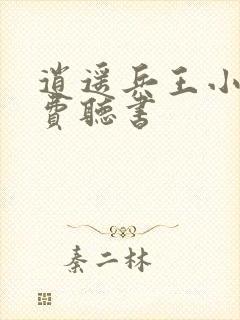 逍遥兵王小
费聴书
秦二林